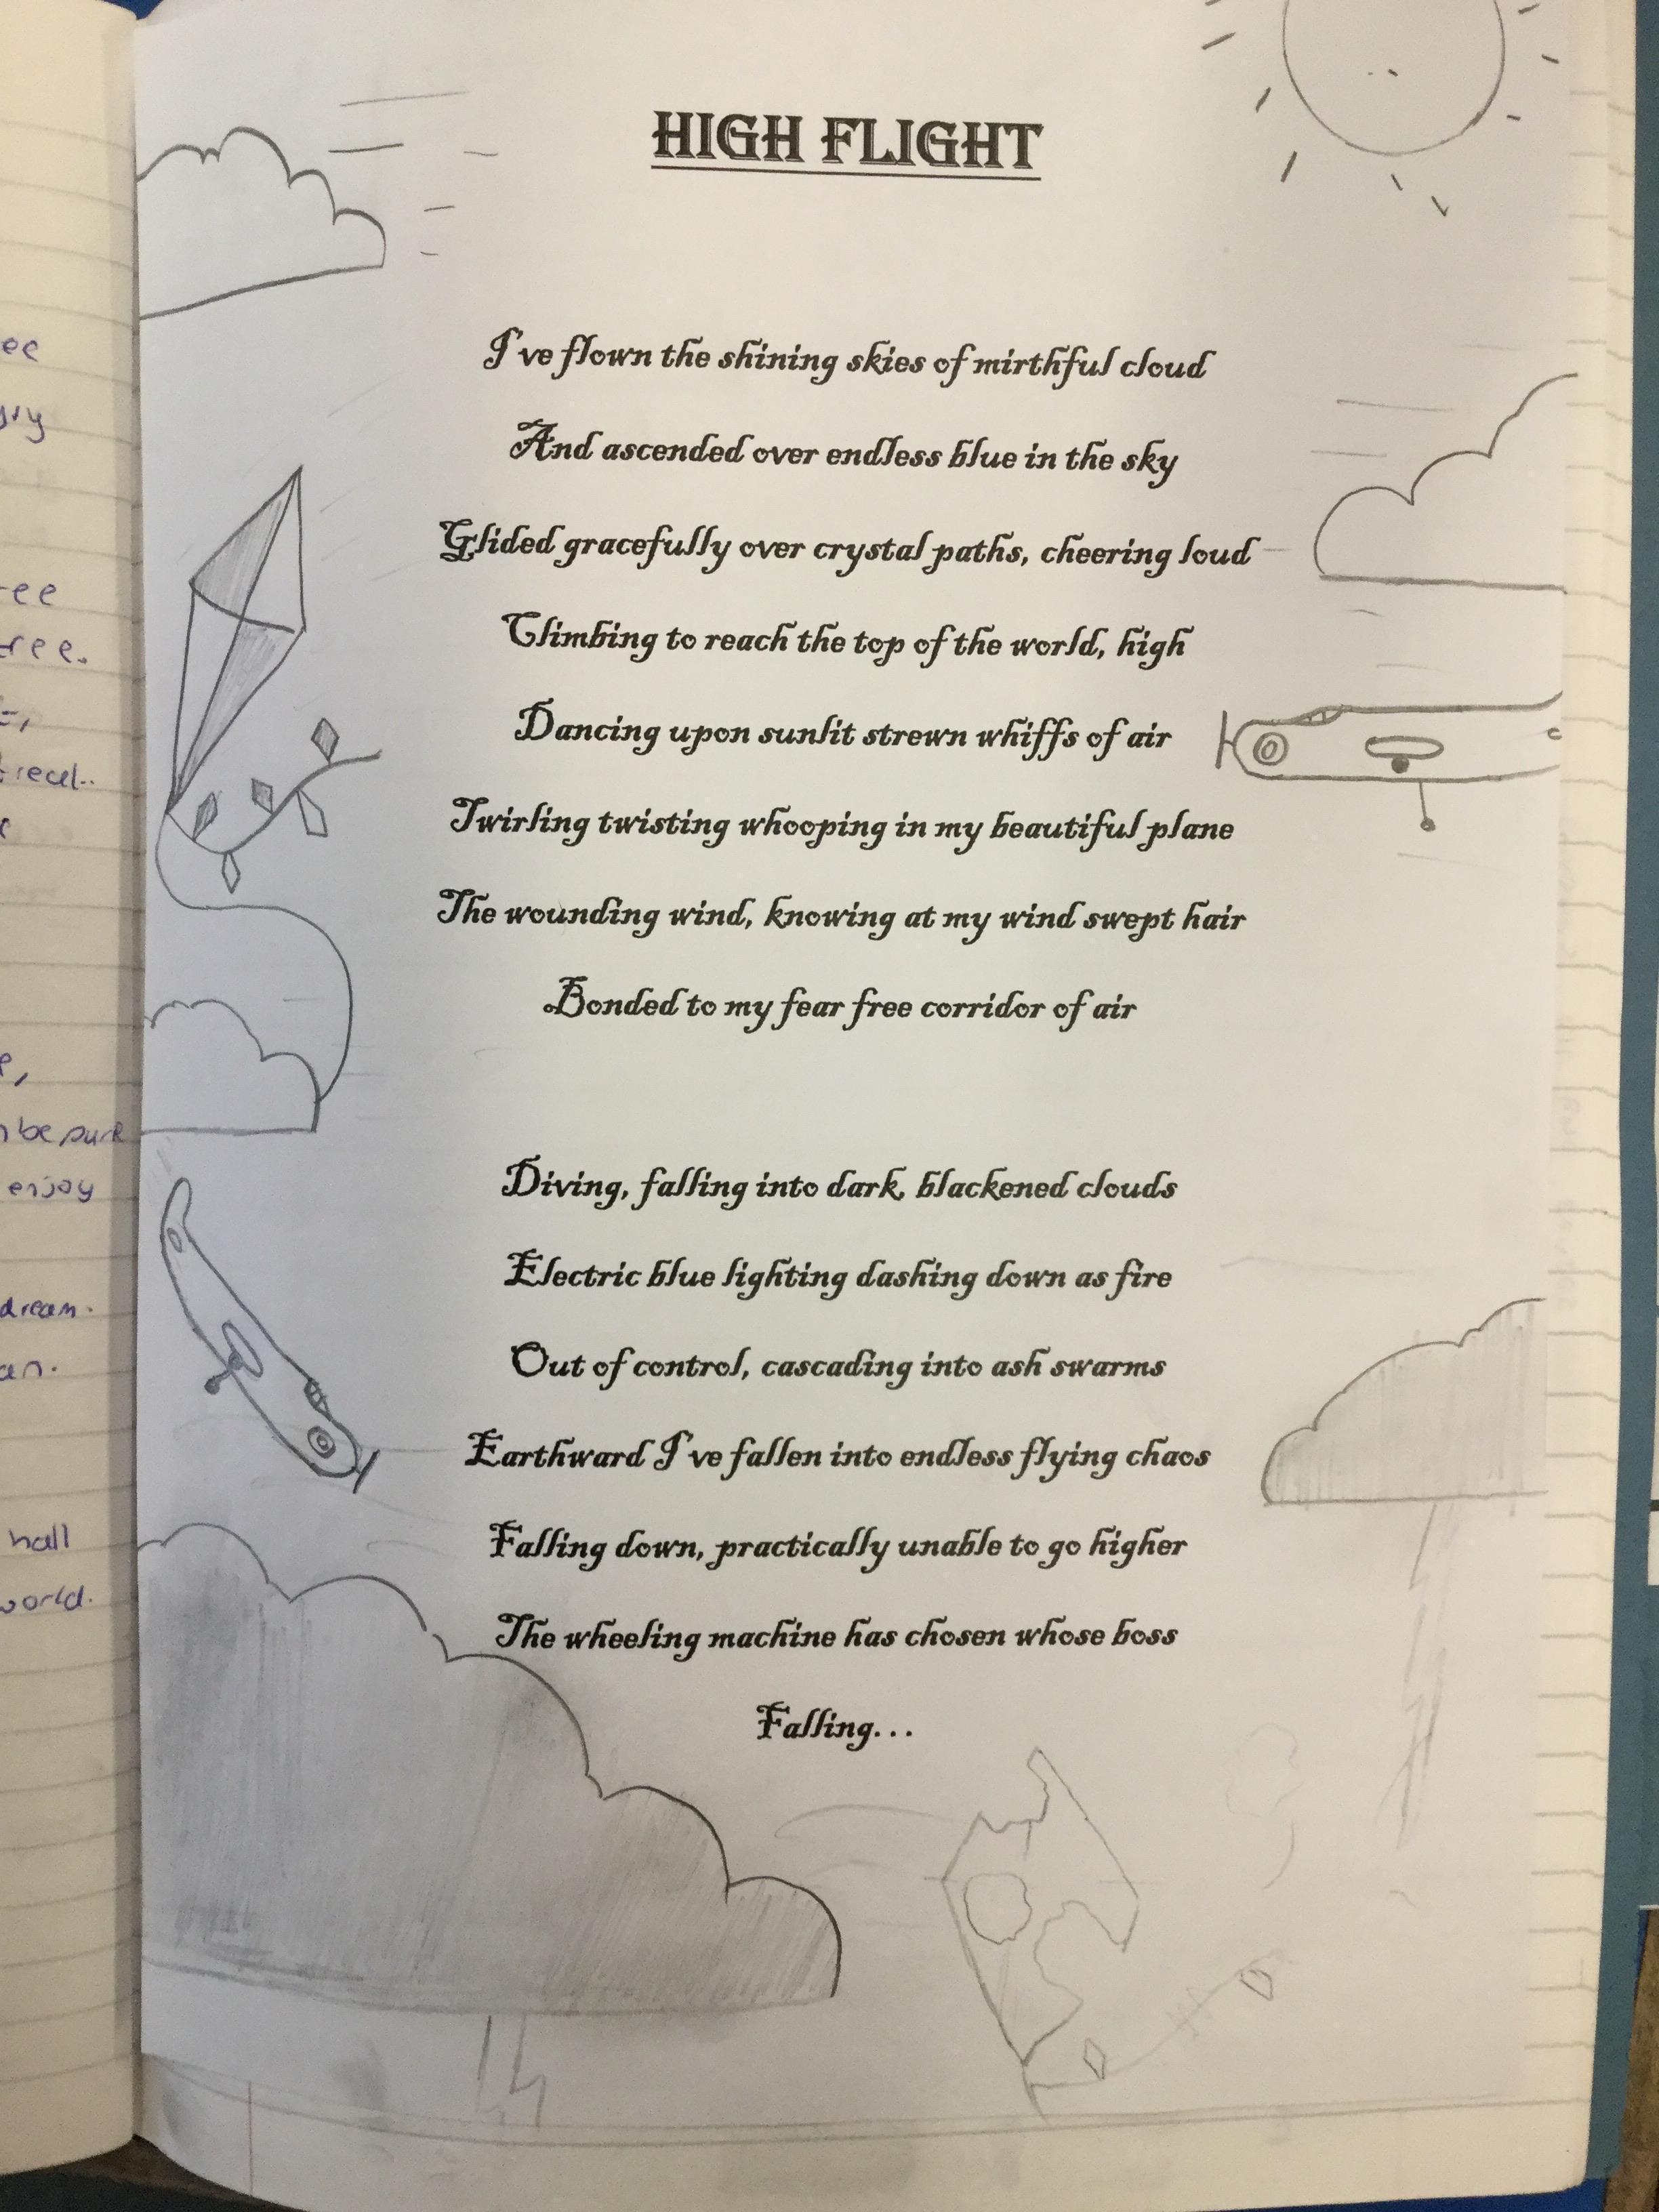 ee
gry
ree
ree.
recd..
e,
n be sure
enjoy
dream.
an.
hall
world.
HIGH FLIGHT
I've flown the shining skies of mirthful cloud
And ascended over endless blue in the sky
Glided gracefully over crystal paths, cheering loud
Climbing to reach the top of the world, high
Dancing upon sunlit strewn whiffs of air
Twirling twisting whooping in my beautiful plane
The wounding wind, knowing at my wind swept hair
Bonded to my fear free corridor of air
Diving, falling into dark, blackened clouds
Electric blue lighting dashing down as fire
Out of control, cascading into ash swarms
Earthward I've fallen into endless flying chaos
Falling down, practically unable to go higher
The wheeling machine has chosen whose boss
Falling...